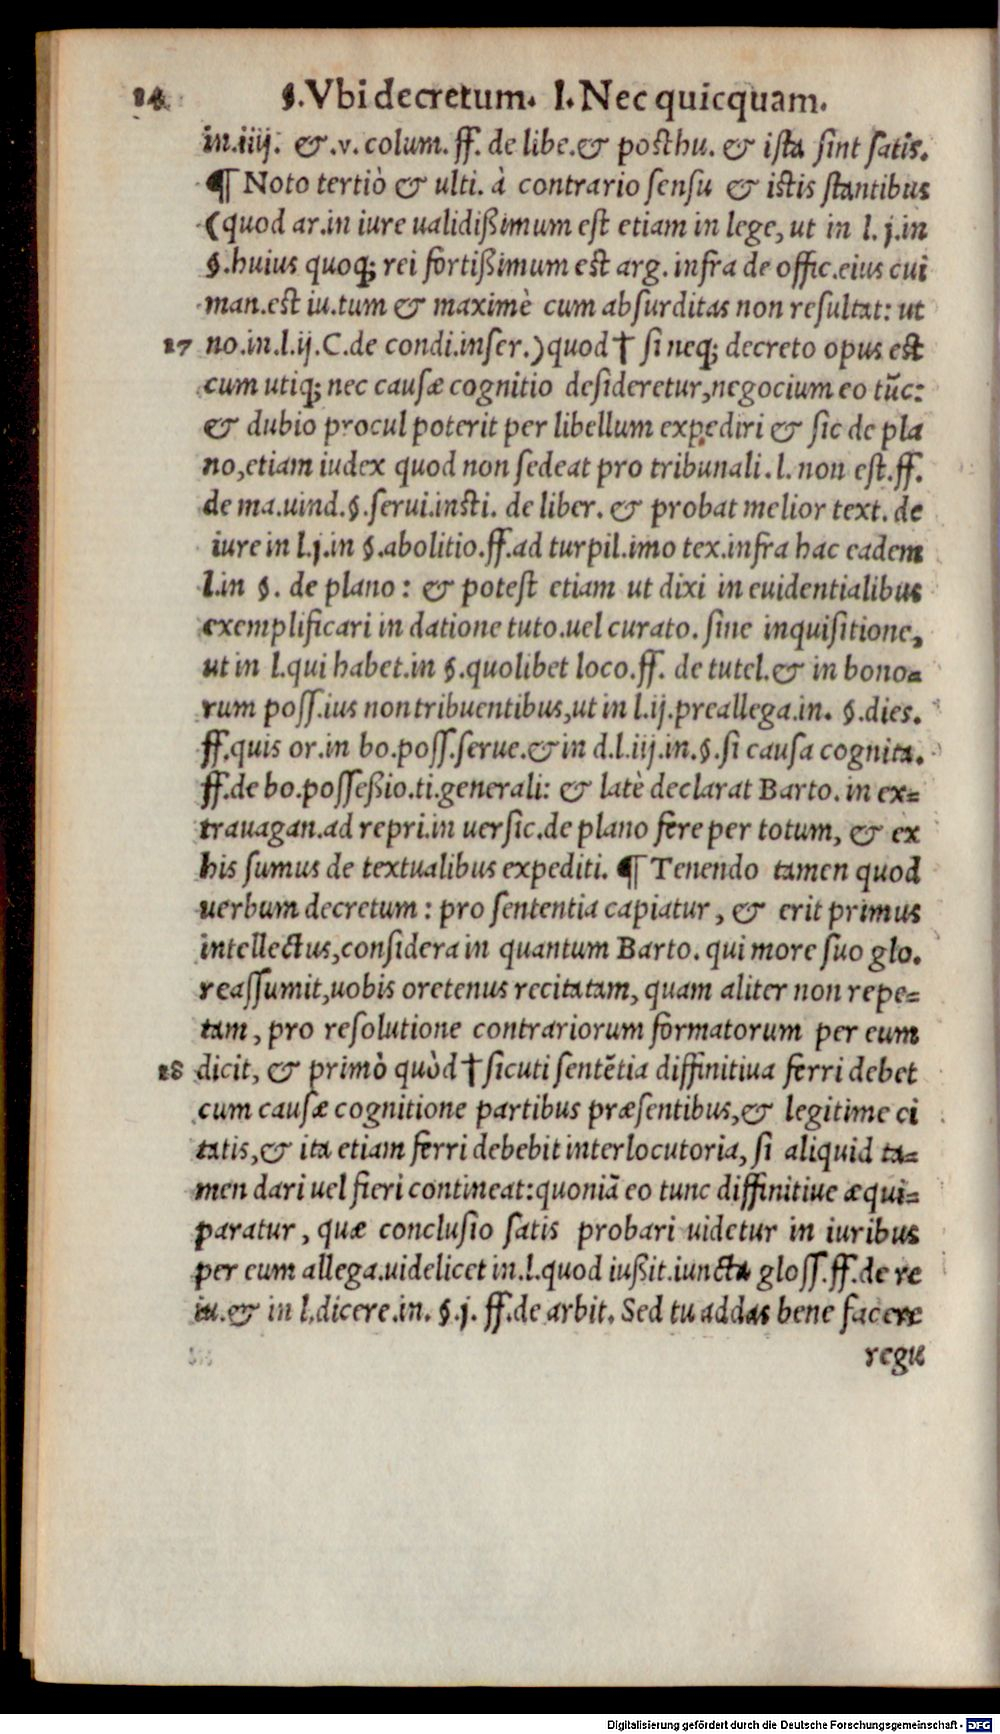 14 §.Vbi decretum. l. Nec quicquam.
in.iiij. & .v. colum. ff. de libe. & posthu. & ista sint satis.
¶ Noto tertiò & ulti. à contrario sensu & istis stantibus
(quod ar.in iure ualidißimum est etiam in lege, ut in l. j.in
§.huius quoq; rei fortißimum est arg. infra de offic.eius cui
man.est iu.tum & maximè cum absurditas non resultat: ut
17 no.in.l.ij.C.de condi.inser.)quod † si neq; decreto opus est
cum utiq; nec causæ cognitio desideretur,negocium eo tūc:
& dubio procul poterit per libellum expediri & sic de pla
no,etiam iudex quod non sedeat pro tribunali.l. non est.ff.
de ma.uind.§.serui.insti. de liber. & probat melior text. de
iure in l.j.in §.abolitio.ff.ad turpil.imo tex.infra hac eadem
l.in §. de plano : & potest etiam ut dixi in euidentialibus
exemplificari in datione tuto.uel curato. sine inquisitione,
ut in l.qui habet.in §.quolibet loco.ff. de tutel.& in bono-
rum poss.ius non tribuentibus,ut in l.ij.preallega.in. §.dies.
ff.quis or.in bo.poss.serue.& in d.l.iij.in.§.si causa cognita.
ff.de bo.posseßio.ti.generali: & latè declarat Barto. in ex-
trauagan.ad repri.in uersic.de plano fere per totum, & ex
his sumus de textualibus expediti. ¶ Tenendo tamen quod
uerbum decretum : pro sententia capiatur, & erit primus
intellectus,considera in quantum Barto. qui more suo glo.
reassumit,uobis oretenus recitatam, quam aliter non repe-
tam, pro resolutione contrariorum formatorum per eum
18 dicit, & primò quòd † sicuti sentētia diffinitiua ferri debet
cum causæ cognitione partibus præsentibus,& legitime ci
tatis,& ita etiam ferri debebit interlocutoria, si aliquid ta-
men dari uel fieri contineat:quoniā eo tunc diffinitiue æqui-
paratur, quæ conclusio satis probari uidetur in iuribus
per eum allega.uidelicet in.l.quod iußit.iuncta gloss.ff.de re
iu.& in l.dicere.in. §.j. ff.de arbit. Sed tu addas bene facere
regu
Digitalisierung gefördert durch die Deutsche Forschungsgemeinschaft - DFG